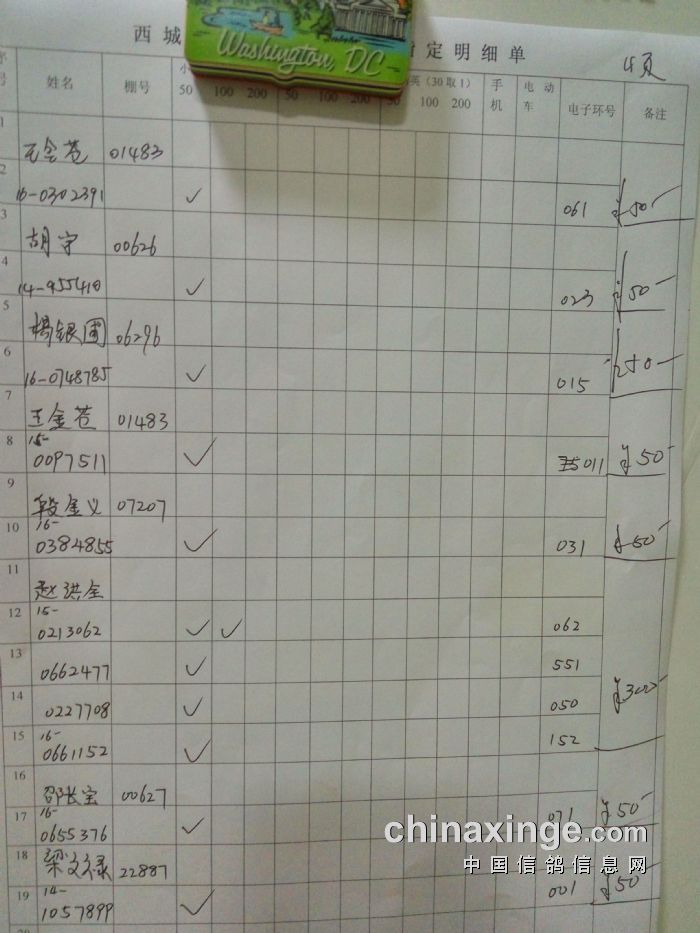 西城
指定明细单
4页
Washington, DC
序号 姓名 棚号 小 50 100 200 50 英(30取1) 100 200 手机 电动车 电子环号 备注
1 王金苍 01483
2 16-0302391 ✓ 061 ¥50-
3 胡宇 00626
4 14-955410 ✓ 023 ¥50-
5 杨银圃 06296
6 16-0748785 ✓ 015 ¥50-
7 王金苍 01483
8 15-0097511 ✓ 011 ¥50-
9 段金义 07207
10 16-0384855 ✓ 031 ¥50-
11 赵洪全
12 15-0213062 ✓ ✓ 062
13 0662477 ✓ 551
14 0227708 ✓ 050 ¥300-
15 16-0661152 ✓ 152
16 邵长宝 00627
17 16-0655376 ✓ 071 ¥50-
18 梁文禄 22887
19 14-1057899 ✓ 001 ¥50-
chinaxinge.com
中国信鸽信息网